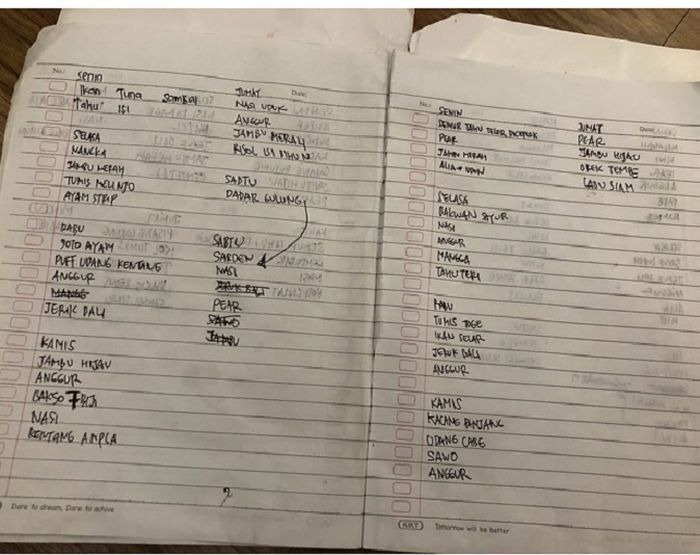 No:
Senin
Ikan Tuna Sambal
Tahu ISI
SELASA
NANGKA
JAMBU MERAH
TUMIS MELINJO
AYAM STRIP
RABU
SOTO AYAM
PUFF UDANG KENTANG
ANGGUR
JERUK BALI
KAMIS
JAMBU HIJAU
ANGGUR
BAKSO 7 BIJI
NASI
KENTANG AMPLA
Date:
JUMAT
NASI UDUK
ANGGUR
JAMBU MERAH
RISOL ISI BIHUN
SABTU
DADAR GULUNG
SABTU
SARDEN
NASI
JERUK BALI
PEAR
SAWO
JAMBU
Dare to dream, Dare to achive
No:
SENIN
SEMUR TAHU TELOR
PEAR
JAMBU MERAH
SELASA
BAKWAN SAYUR
NASI
ANGGUR
MANGGA
TAHU TERI
RABU
TUMIS TOGE
IKAN SELAR
JERUK BALI
ANGGUR
KAMIS
KACANG PANJANG
UDANG CABE
SAWO
ANGGUR
Date:
JUMAT
PEAR
JAMBU HIJAU
OREK TEMPE
LABU SIAM
KKY Tomorrow will be better